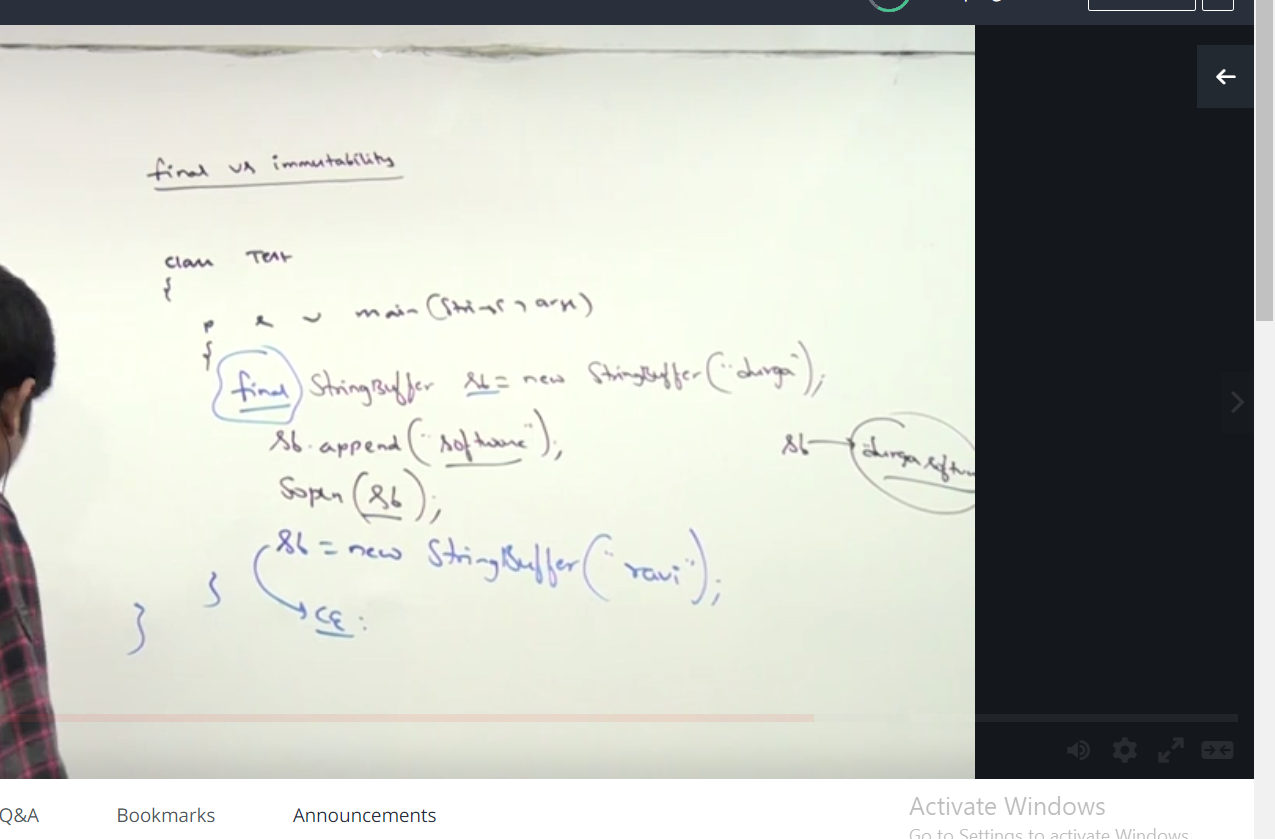 final vs immutability
class Test
{
p s v main(String[] args)
{
final StringBuffer sb = new StringBuffer("durga");
sb.append("software");
Sopln(sb);
sb → durga softw
sb = new StringBuffer("ravi");
}
CE:
}
Q&A Bookmarks Announcements
Activate Windows
Go to Settings to activate Windows